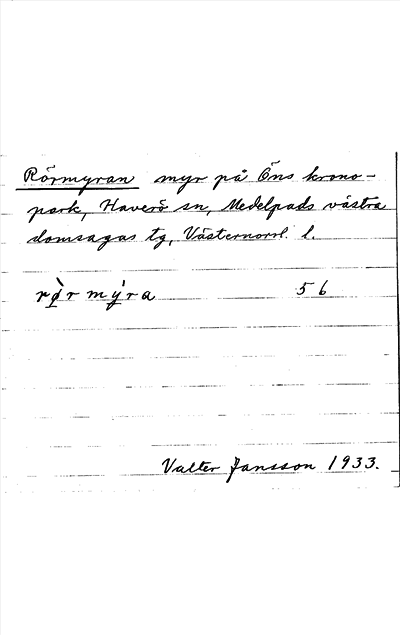 Rörmyran myr på Öns krono-
park, Haverö sn, Medelpads västra
domsagas tg, Västernorrl. l.
rø̀r mýra 56
Valter Jansson 1933.